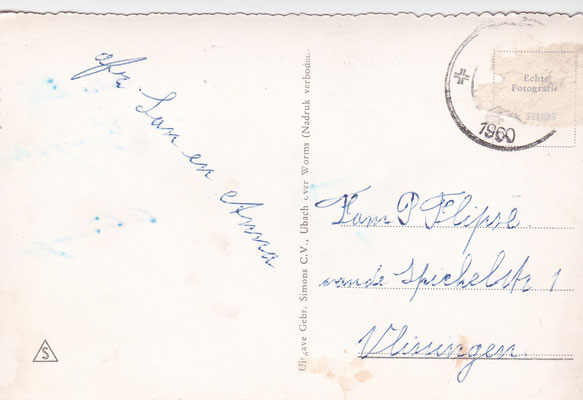 afz. San en Anna.
Uitgave Gebr. Simons C.V., Ubach over Worms (Nadruk verboden)
Echte
Fotografie
1960
Fam P Flipse.
van de Spiekelstr 1
Vlissingen.
S